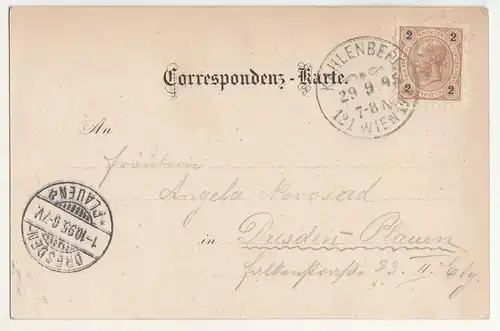 2 2
KAHLENBERG
29 9 95
7-8 N
121 WIEN
2 2
Correspondenz-Karte.
An
Fräulein
Angela
in Dresden-Plauen
Falkenstraße 33 II
DRESDEN-PLAUEN
1-10.95. 6-7V.